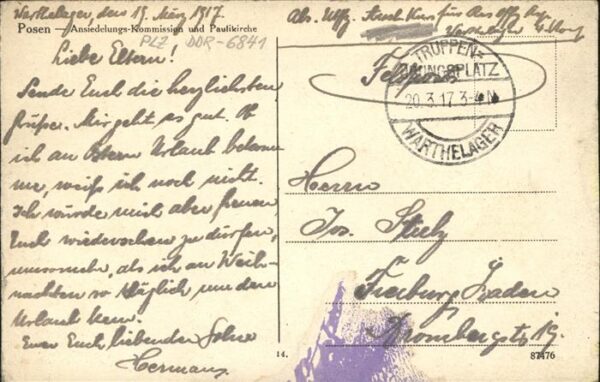 Warthelager, den 19. März 1917.
Posen — Ansiedelungs-Kommission und Paulikirche
PLZ DDR-6841
Liebe Eltern!
Sende Euch die herzlichsten
Grüße. Mir geht es gut. Ob
ich an Ostern Urlaub bekom-
me, weiß ich noch nicht.
Ich würde mich aber freuen
Euch wiedersehen zu dürfen,
umsomehr, als ich an Weih-
nachten so kläglich um den
Urlaub kam.
Euer Euch liebender Sohn
Hermann
Abs. Uffz.
Warthelager
Feldpost
TRUPPEN=
ÜBUNGSPLATZ
20.3.17.3-4 N
WARTHELAGER
Herrn
Jos. Stulz
Freiburg Baden
Krombergstr 19.
14.
87476